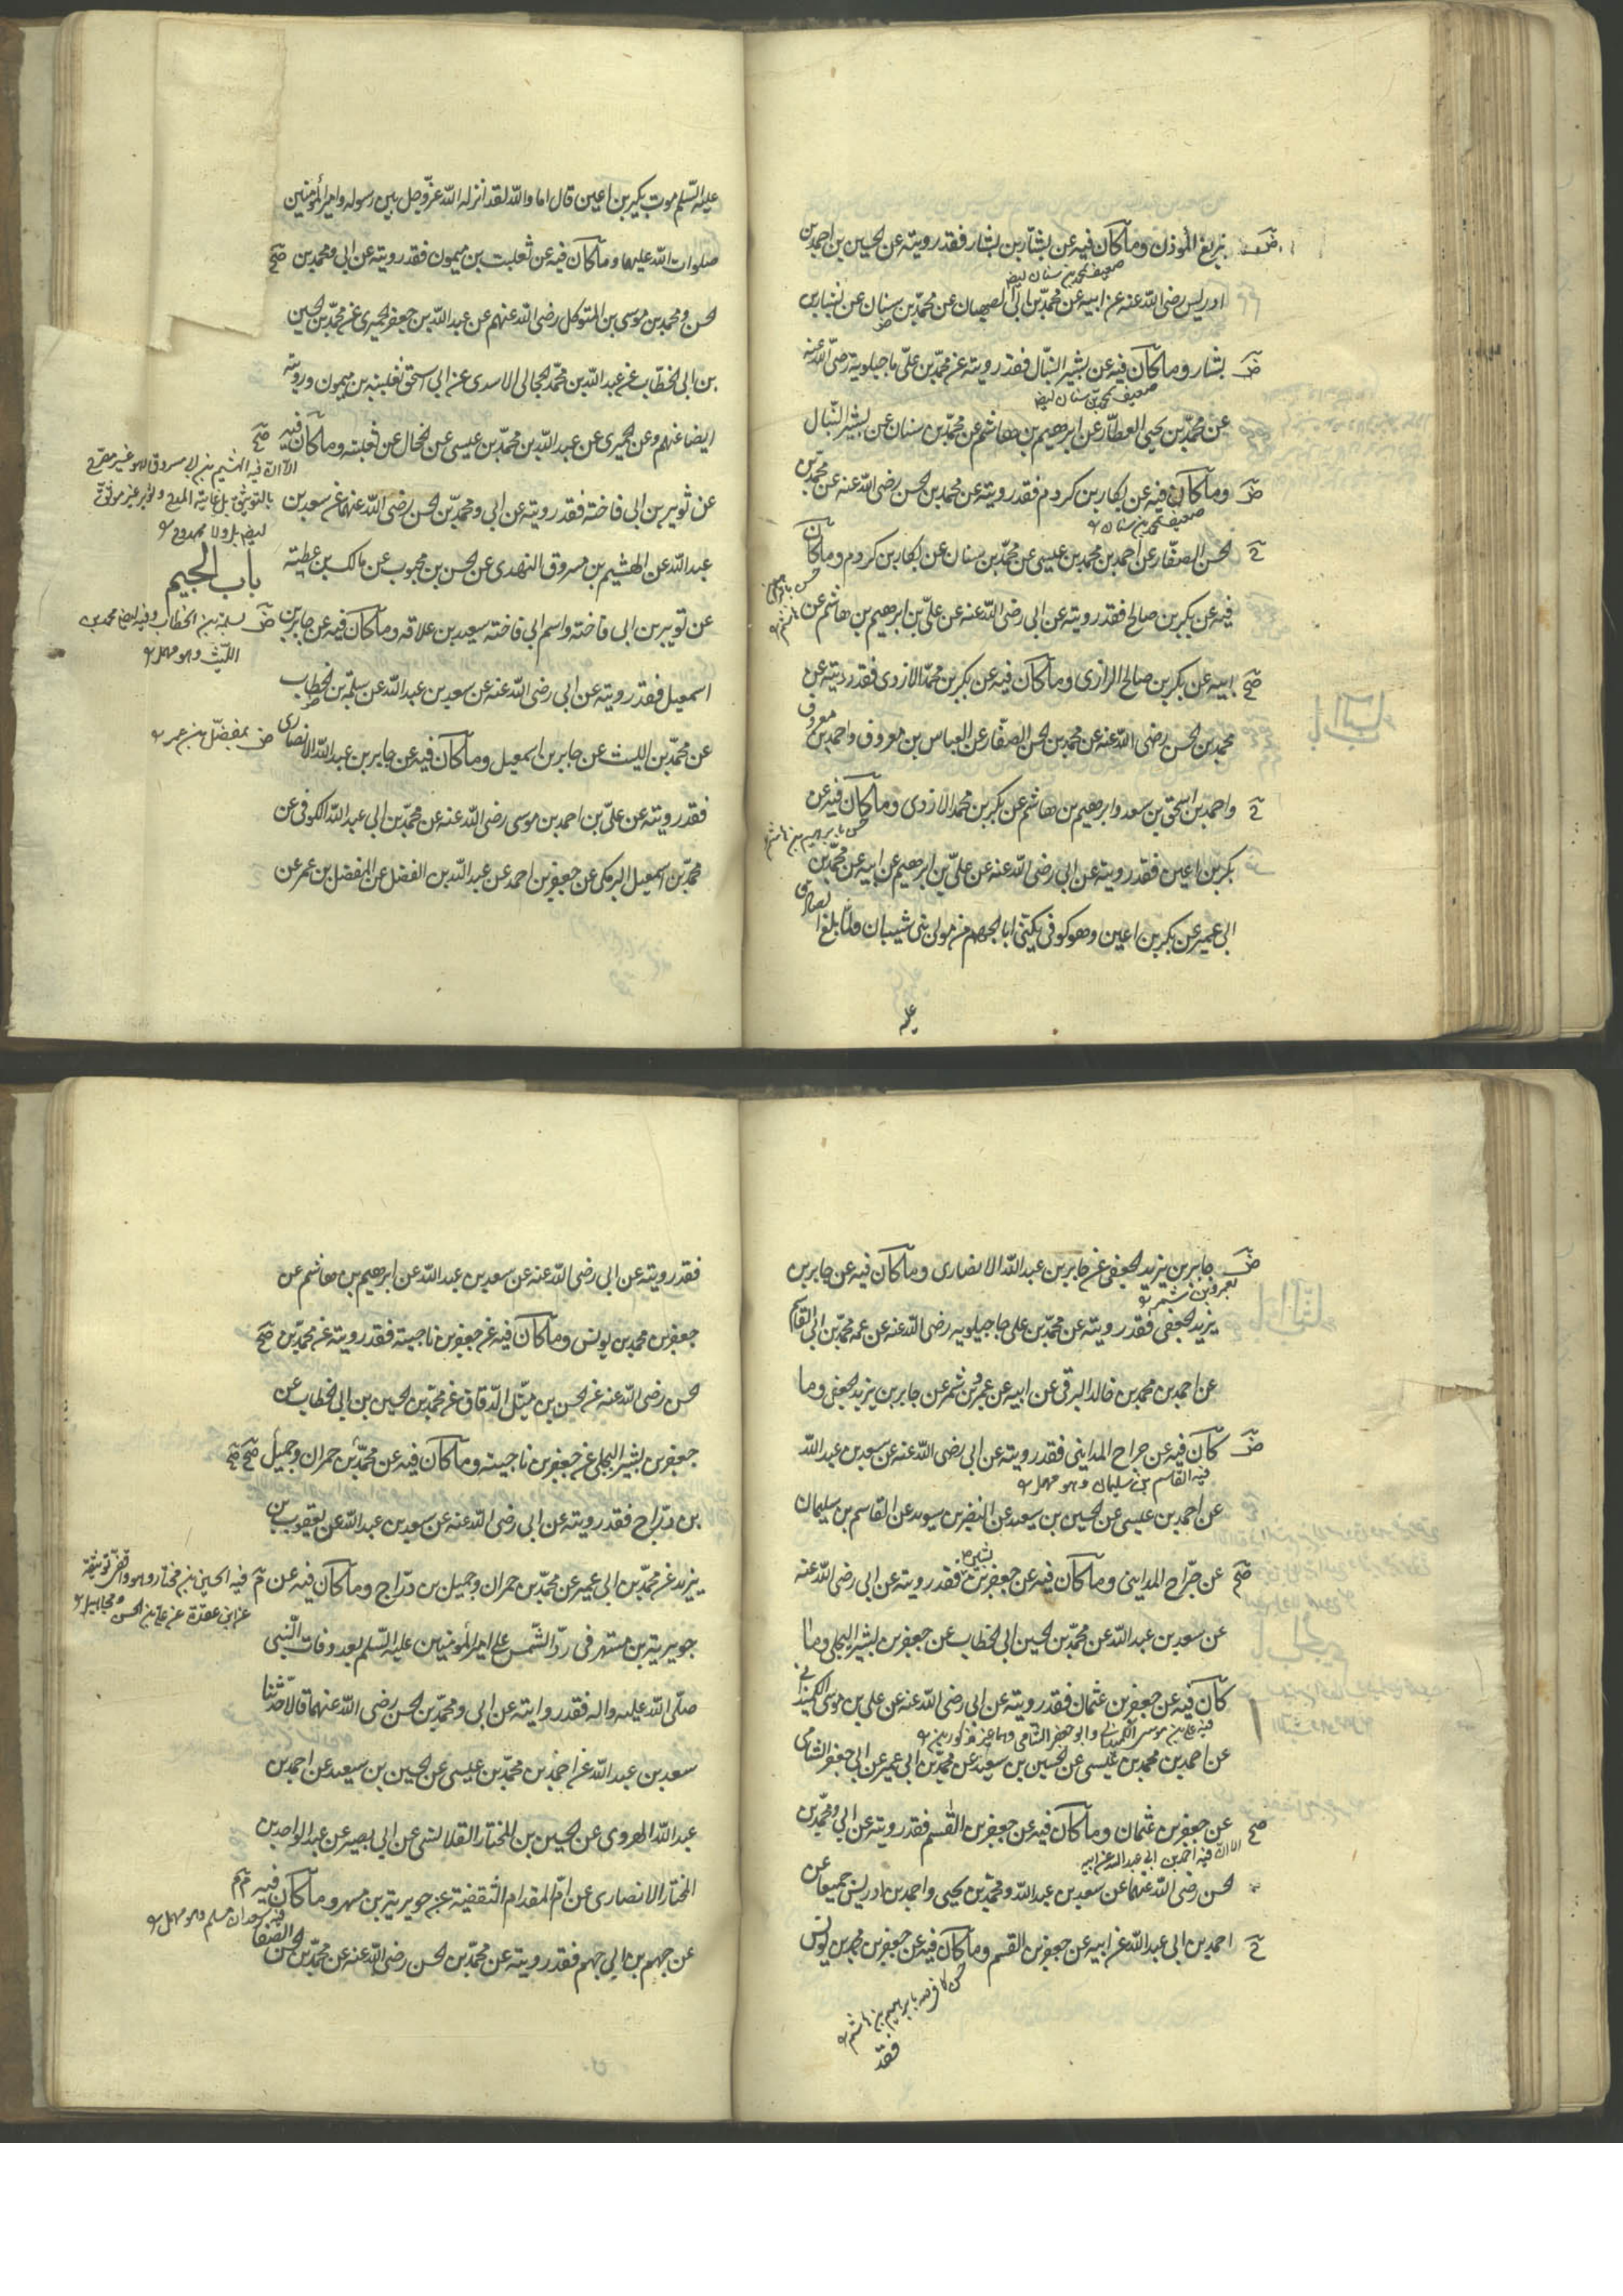 بزيع المؤذن وما كان فيه عن بشار بن بشار فقد رويته عن الحسين بن احمد بن
ضعيف بمحمد بن سنان ايضا
ادريس رضى الله عنه عن ابيه عن محمد بن ابى الصهبان عن محمد بن سنان عن بشار بن
بشار وما كان فيه عن بشير النبّال فقد رويته عن محمد بن علىّ ماجيلويه رضى الله عنه
ضعيف بمحمد بن سنان ايضا
عن محمد بن يحيى العطّار عن ابرهيم بن هاشم عن محمد بن سنان عن بشير النبّال
وما كان فيه عن بكار بن كردم فقد رويته عن محمد بن الحسن رضى الله عنه عن محمد بن
ضعيف بمحمد بن سنان
لحسن الصفّار عن احمد بن محمد بن عيسى عن محمد بن سنان عن بكار بن كردم وما كان
فيه عن بكر بن صالح فقد رويته عن ابى رضى الله عنه عن علىّ بن ابرهيم بن هاشم عن
ابيه عن بكر بن صالح الرازى وما كان فيه عن بكر بن محمد الازدى فقد رويته عن
محمد بن لحسن رضى الله عنه عن محمد بن لحسن الصفّار عن العباس بن معروف واحمد بن
معروف
واحمد بن اسحق بن سعد وابرهيم بن هاشم عن بكر بن محمد الازدى وما كان فيه عن
حسن بابرهيم بن هاشم
بكر بن اعين فقد رويته عن ابى رضى الله عنه عن علىّ بن ابرهيم عن ابيه عن محمد بن
ابى عمير عن بكر بن اعين وهو كوفى يكنى ابا الجهم من موالى بنى شيبان ولما بلغ الصادق
عليه
عليه السّلم موت بكير بن اعين قال اما والله لقد انزله الله عزّ وجل بين رسوله وامير المؤمنين
صلوات الله عليهما وما كان فيه عن ثعلبت بن ميمون فقد رويته عن ابى ومحمد بن صح
لحسن ومحمد بن موسى بن المتوكل رضى الله عنهم عن عبد الله بن جعفر لحميرى عن محمد بن لحسين
بن ابى لخطّاب عن عبد الله بن محمّد لحجالى الاسدى عن ابى اسحق ثعلبته بن ميمون ورويته
ايضا عنهم وعن لحميرى عن عبد الله بن محمد بن عيسى عن لحجال عن ثعلبته وما كان فيه صح
عن ثوير بن ابى فاخته فقد رويته عن ابى ومحمد بن لحسن رضى الله عنهما عن سعد بن
عبد الله عن الهشيم بن مسروق النهدى عن لحسن بن محبوب عن مالك بن عطيته
باب الجيم
عن ثوير بن ابى فاخته واسم ابى فاخته سعيد بن علاقه وما كان فيه عن جابر بن
سلمة بن الخطاب وفيه ايضا محمد بن
الليث وهو مهمل
اسمعيل فقد رويته عن ابى رضى الله عنه عن سعد بن عبد الله عن سلمة بن لخطاب
عن محمد بن الليث عن جابر بن اسمعيل وما كان فيه عن جابر بن عبد الله الانصارى
ض بمفضّل بن عمر
فقد رويته عن علىّ بن احمد بن موسى رضى الله عنه عن محمد بن ابى عبد الله الكوفى عن
محمد بن اسمعيل البرمكى عن جعفر بن احمد عن عبد الله بن الفضل عن المفضل بن عمر عن
جابر بن يزيد لجعفى عن جابر بن عبد الله الانصارى وما كان فيه عن جابر بن
بعمرو بن شمر
يزيد لجعفى فقد رويته عن محمد بن على ماجيلويه رضى الله عنه عن عمه محمد بن ابى القاسم
عن احمد بن محمد بن خالد البرقى عن ابيه عن عمرو بن شمر عن جابر بن يزيد لجعفى وما
كان فيه عن جراح المداينى فقد رويته عن ابى رضى الله عنه عن سعد بن عبد الله
فيه القاسم بن سليمان وهو مهمل
عن احمد بن عيسى عن لحسين بن سعيد عن النضر بن سويد عن القاسم بن سليمان
عن جرّاح المداينى وما كان فيه عن جعفر بن بشير فقد رويته عن ابى رضى الله عنه
عن سعد بن عبد الله عن محمد بن لحسين ابى لخطاب عن جعفر بن بشير البجلى وما
كان فيه عن جعفر بن عثمان فقد رويته عن ابى رضى الله عنه عن على بن موسى الكميدانى
فيه على بن موسى الكميدانى وابو جعفر الشامى وهما غير مذكورين
عن احمد بن محمد بن عيسى عن لحسين بن سعيد عن محمد بن ابى عمير عن ابى جعفر الشامى
عن جعفر بن عثمان وما كان فيه عن جعفر بن القسم فقد رويته عن ابى ومحمد بن
الا ان فيه احمد بن ابى عبد الله عن ابيه
لحسن رضى الله عنهما عن سعد بن عبد الله ومحمد بن يحيى واحمد بن ادريس جميعا عن
احمد بن ابى عبد الله عن ابيه عن جعفر بن القسم وما كان فيه عن جعفر بن محمد بن يونس
فقد
فقد رويته عن ابى رضى الله عنه عن سعد بن عبد الله عن ابرهيم بن هاشم عن
جعفر بن محمد بن يونس وما كان فيه عن جعفر بن ناجيته فقد رويته عن محمد بن صح
لحسن رضى الله عنه عن لحسن بن متّيل الدقاق عن محمد بن لحسين بن ابى لخطاب عن
جعفر بن بشير البجلى عن جعفر بن ناجيته وما كان فيه عن محمد بن حمران وجميل صح صح
بن درّاج فقد رويته عن ابى رضى الله عنه عن سعد بن عبد الله عن يعقوب بن
يزيد عن محمد بن ابى عمير عن محمد بن حمران وجميل بن درّاج وما كان فيه عن
جويريته بن مسهر فى ردّ الشمس على امير المؤمنين عليه السّلم بعد وفات النّبى
صلّى الله عليه واله فقد روايته عن ابى ومحمد بن لحسن رضى الله عنهما قالا حدثنا
سعد بن عبد الله عن احمد بن محمد بن عيسى عن لحسين بن سعيد عن احمد بن
عبد الله الهروى عن لحسين بن المختار القلانسى عن ابى بصير عن عبد الواحد بن
المختار الانصارى عن امّ المقدام الثقفية عن جويريته بن مسهر وما كان فيه
فيه سعدان مسلم وهو مهمل
عن جهم بن ابى جهم فقد رويته عن محمد بن لحسن رضى الله عنه عن محمد بن لحسن الصفار